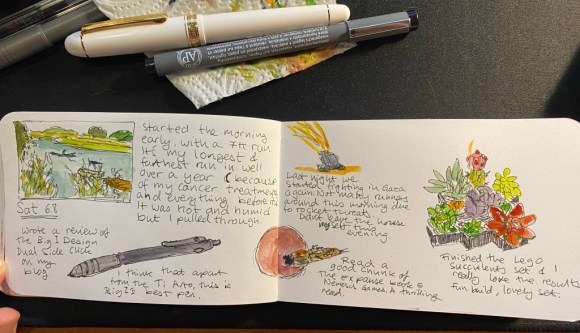 Started the morning
early, with a 7k run
It's my longest &
furthest run in well
over a year (because
of my cancer treatments
and everything before it)
It was hot and humid
but I pulled through.
Sat 6.8
Wrote a review of
The Big I Design
Dual Side Click
on my
blog
I think that apart
from the Ti Arto, this is
Big I's best pen.
Last night we
started fighting in Gaza
again. Not many runners
around this morning due
to rocket threats.
Didn't leave the house
yet this
evening
Read a
good chunk of
The Expanse book 5
Nemesis Games. A thrilling
read.
Finished the Lego
succulents set & I
really love the results
Fun build, lovely set.
AP